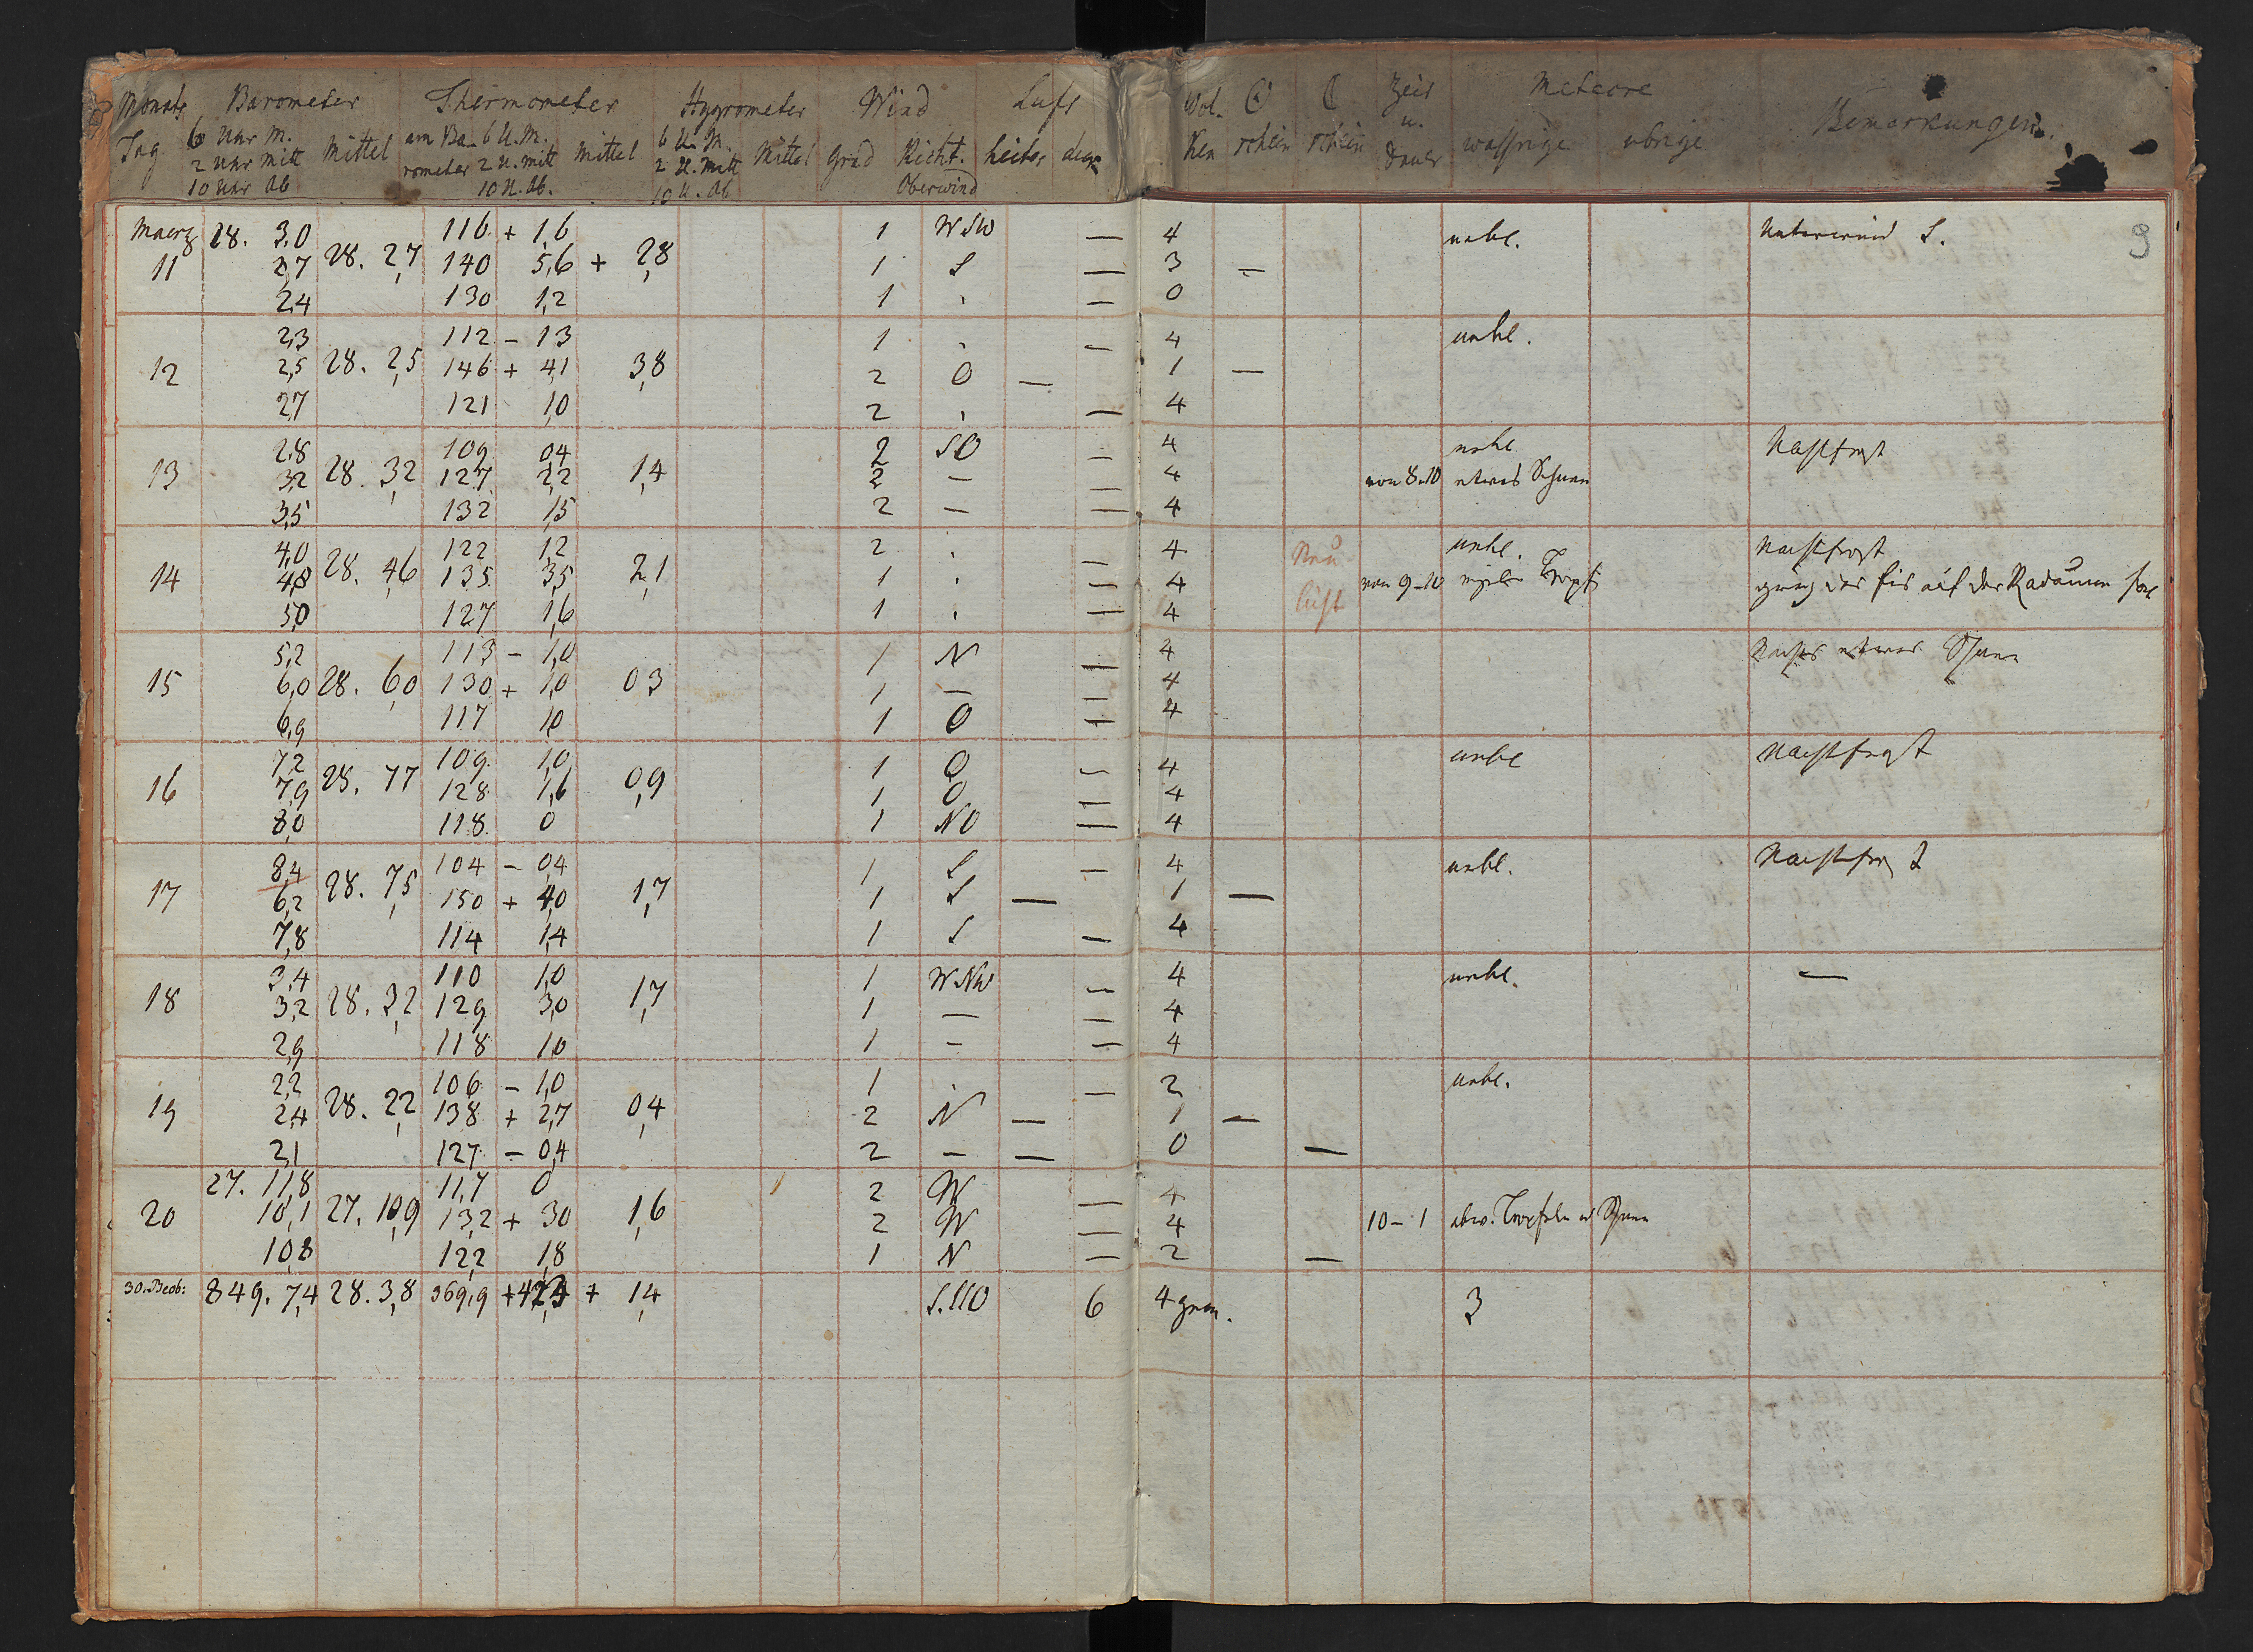 Monats Barometer Thermometer Hygrometer Wind Luft Wol- ☉ ☾ Zeit Meteore Bemerkungen.
Tag 6 Uhr M. Mittel am Ba- 6 U.M. Mittel 6 U.M. Mittel Grad Richt. heiter ken schein schein u. wassrige ubrige
2 Uhr Mitt rometer 2 U. Mitt 2 U. Mitt Oberwind Dauer
10 Uhr Ab 10 U. Ab. 10 U. Ab
9
Maerz 28. 3,0 116 + 1,6 1 WSW — 4 nebl. Unterwind S.
11 2,7 28. 2,7 140 5,6 + 2,8 1 S — 3 —
2,4 130 1,2 1 . — 0
2,3 112 - 13 1 . — 4 nebl.
12 2,5 28. 2,5 146 + 4,1 3,8 2 O — 1 —
2,7 121 1,0 2 . — 4
2,8 109 04 2 SO — 4 nebl Nachtfrost
13 3,2 28. 3,2 127 2,2 1,4 2 — — 4 von 8-10 etwas Schnee
3,5 132 1,5 2 — — 4
4,0 122 1,2 2 . — 4 Neu nebl. Nachtfrost
14 4,8 28. 4,6 135 3,5 2,1 1 . — 4 von 9-10 ging das Eis auf der Radaune fort
5,0 127 1,6 1 . — 4 licht
5,2 113 - 1,0 1 N — 4 Nachts etwas Schnee
15 6,0 28. 6,0 130 + 1,0 03 1 — — 4
6,9 117 1,0 1 O — 4
7,2 109 1,0 1 O — 4 nebl Nachtfrost
16 7,9 28. 77 128 1,6 0,9 1 O — 4
8,0 118 0 1 NO — 4
8,4 104 - 0,4 1 S — 4 nebl. Nachtfrost
17 6,2 28. 7,5 150 + 4,0 1,7 1 S — 1 —
7,8 114 1,4 1 S — 4
3,4 110 1,0 1 WNW — 4 nebl. —
18 3,2 28. 3,2 129 3,0 1,7 1 — — 4
2,9 118 1,0 1 — — 4
2,2 106 - 1,0 1 . — 2 nebl.
19 2,4 28. 2,2 138 + 2,7 0,4 2 N — 1 —
2,1 127 - 0,4 2 — — 0 —
27. 11,8 11,7 0 2 W — 4
20 10,1 27. 10,9 13,2 + 30 1,6 2 W — 4 10-1 abw. Tropfeln u Schnee
10,8 12,2 1,8 1 N — 2 —
30. Beob: 849. 7,4 28. 3,8 369,9 + 1,4 S.SSO 6 4 3